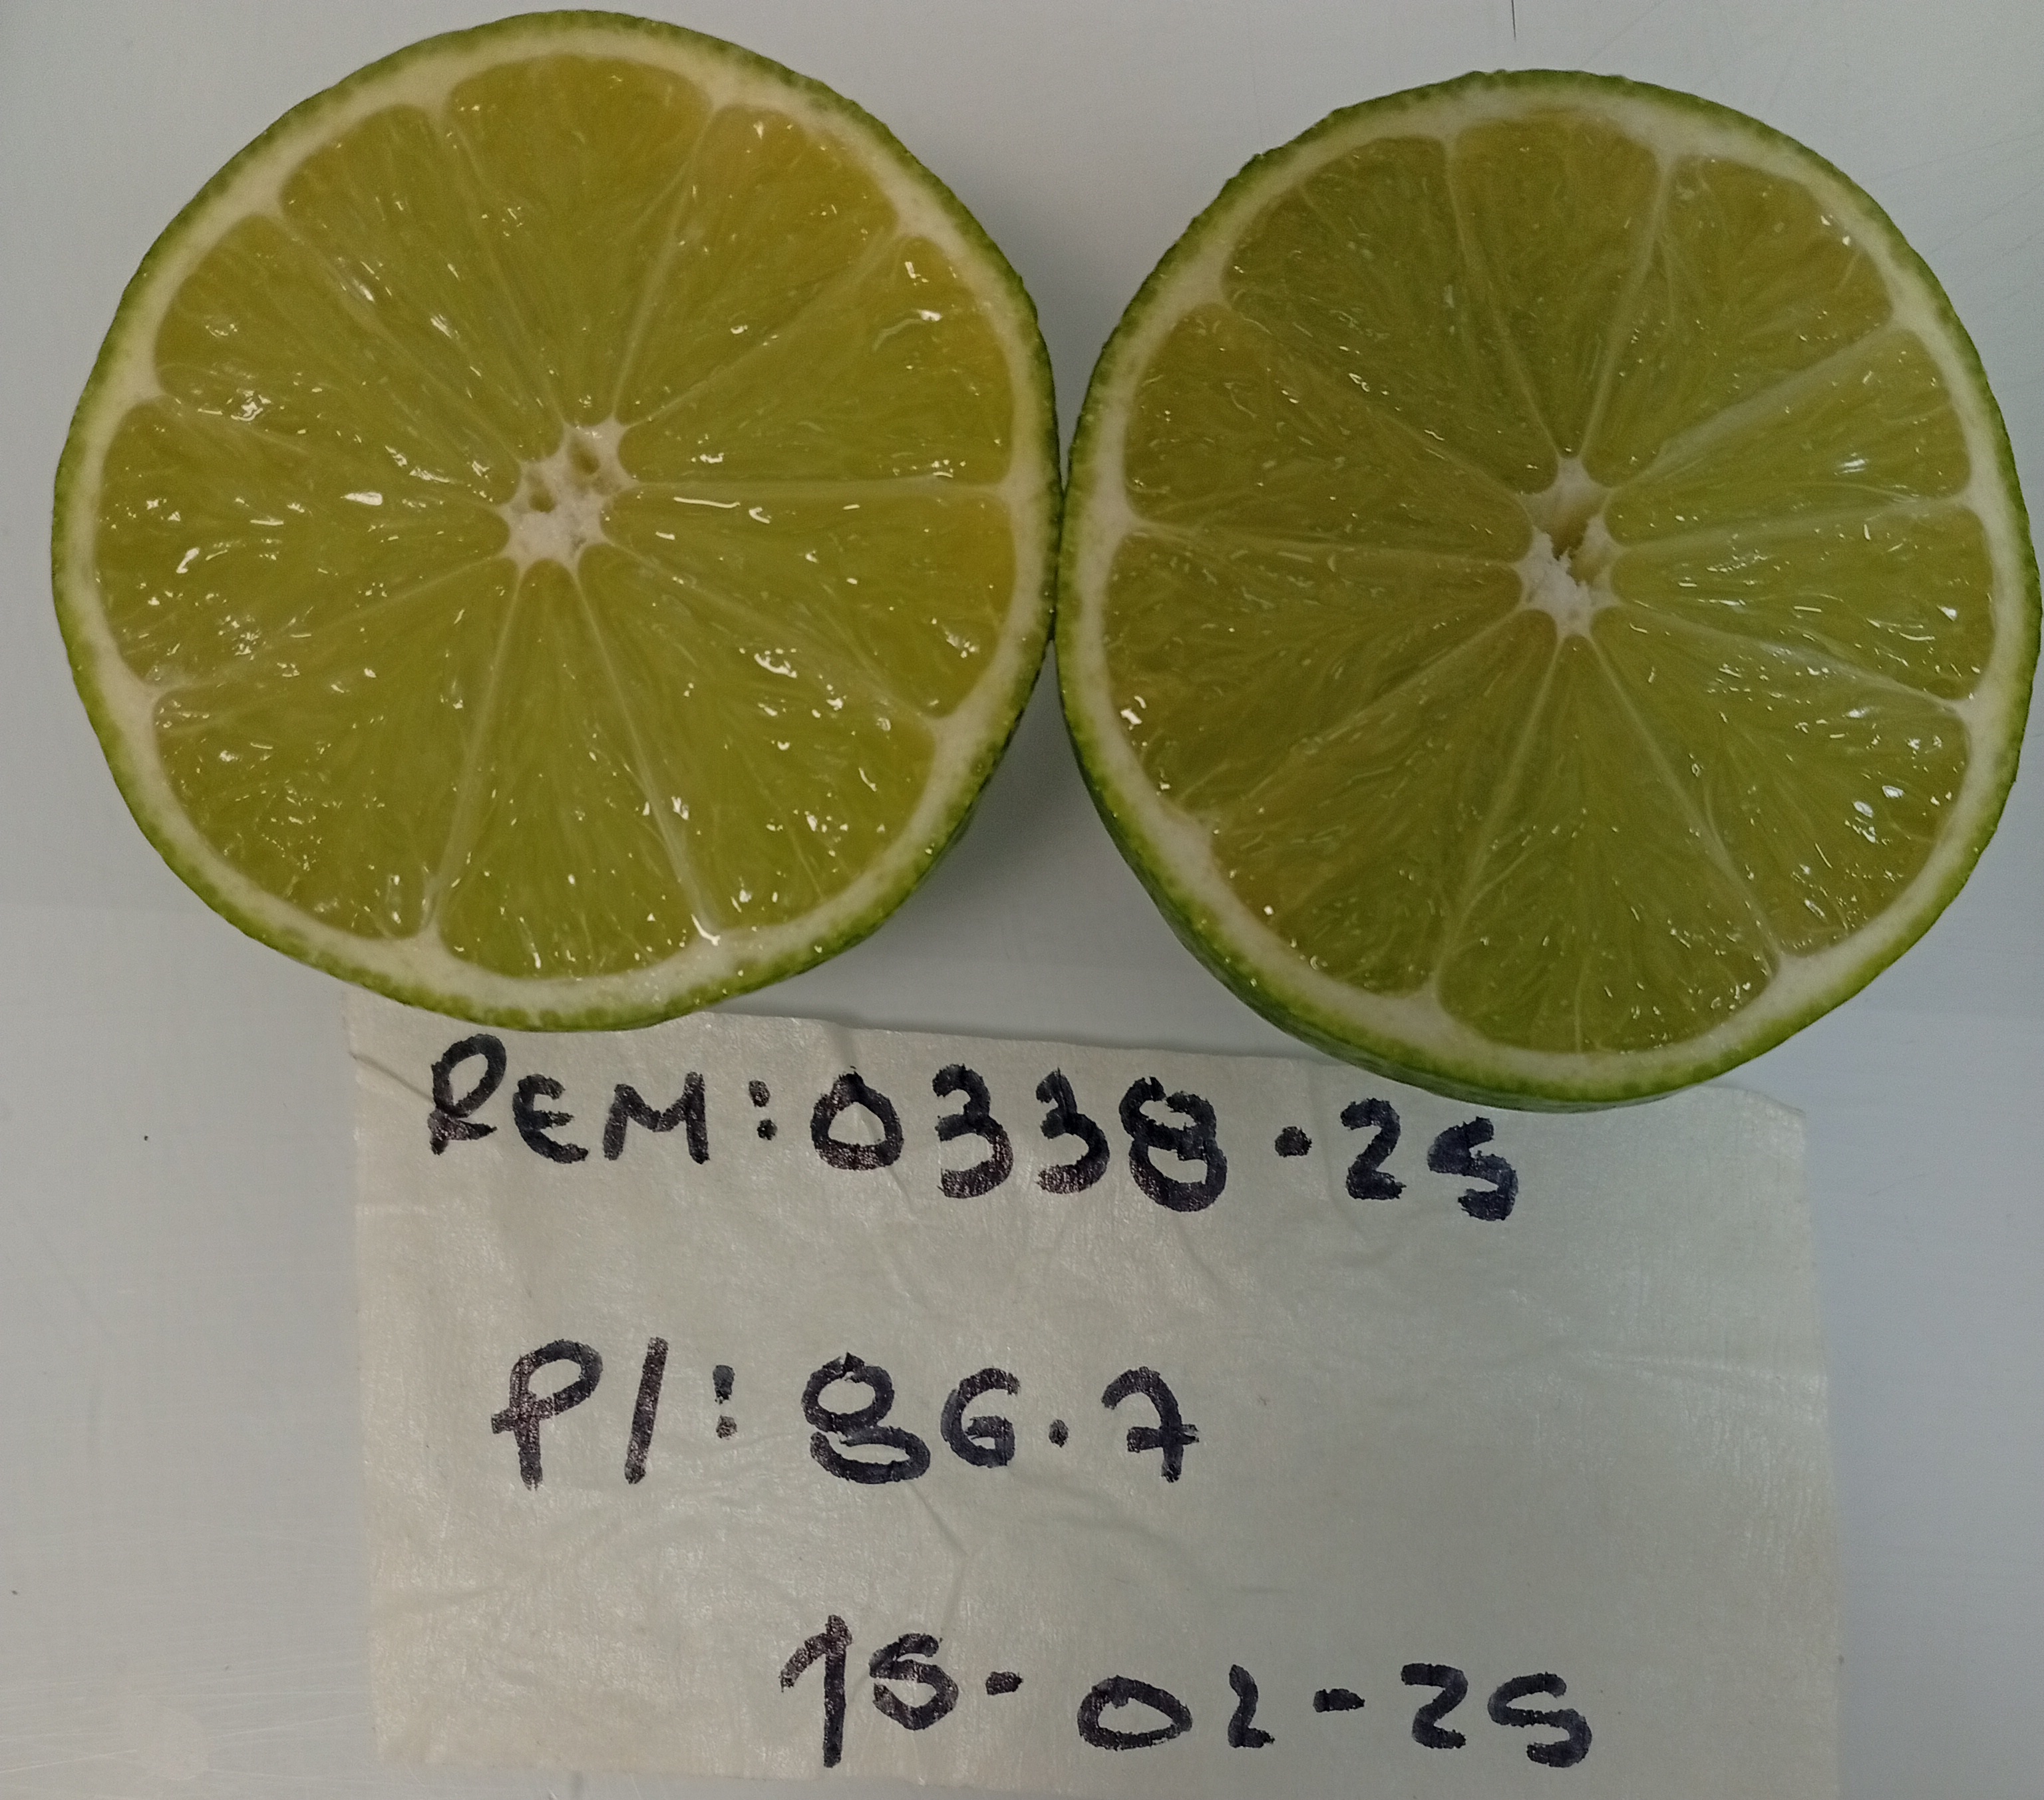 REM: 0338.25
P/: 86.7
15-02-25